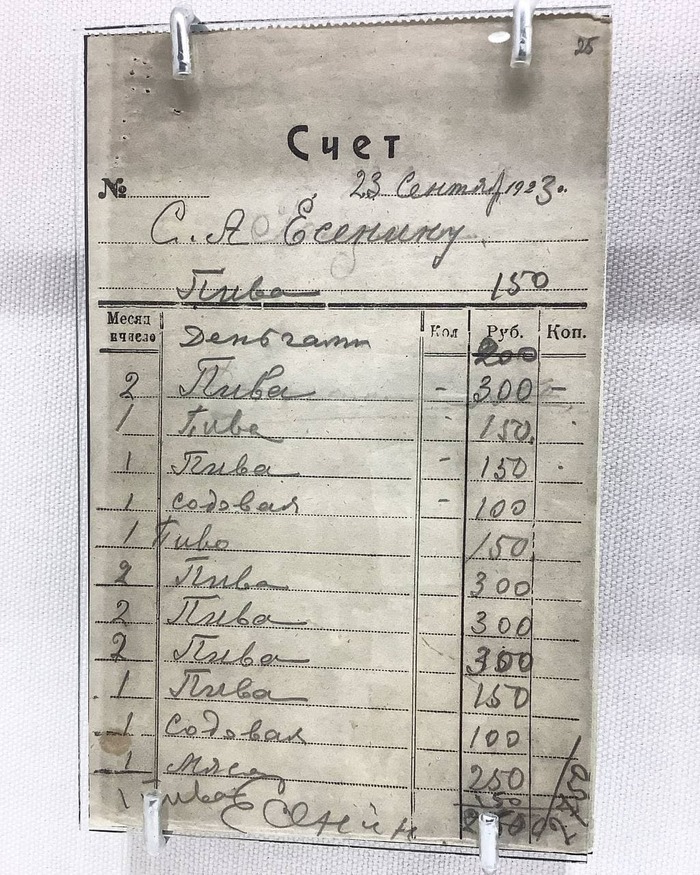 25
Счет
№ 23 Сентяб 1923г.
С. А Есенину
Пива 150
Месяц и число Деньгами Кол Руб. Коп.
200
2 Пива - 300 -
1 Пива 150
1 Пива - 150
1 Содовая - 100
1 Пиво 150
2 Пива 300
2 Пива 300
2 Пива 300
1 Пива 150
1 Содовая 100
1 Мясо 250
1 Пива 150
Есенин